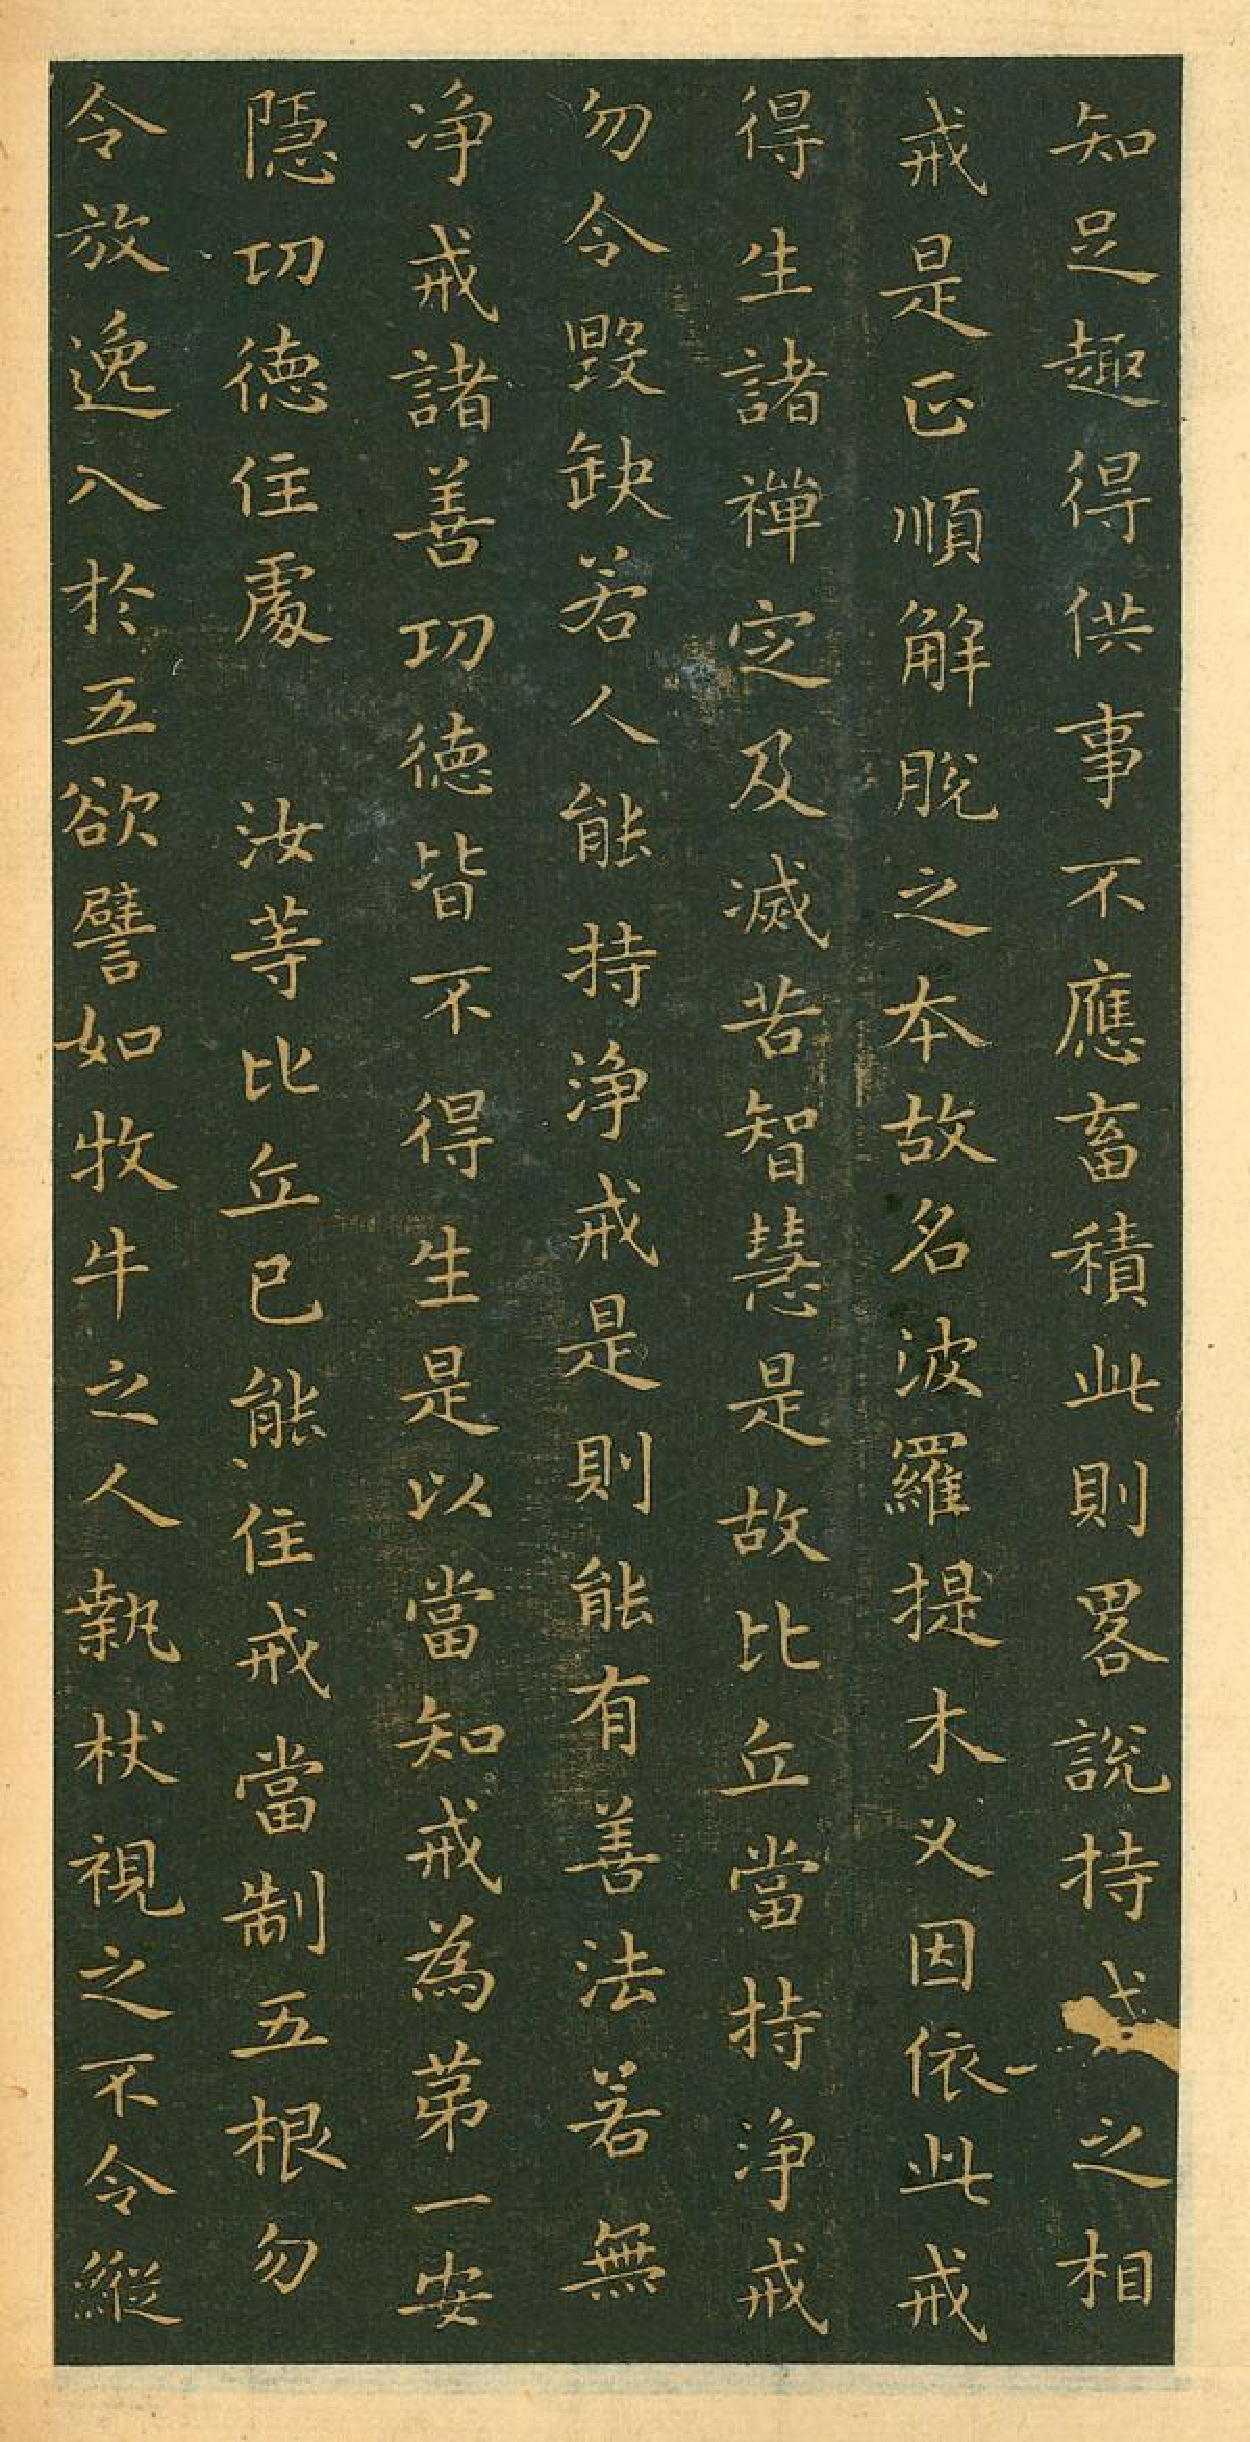 知足趣得供事不應畜積此則畧說持戒之相
戒是正順解脫之本故名波羅提木叉因依此戒
得生諸禪定及滅苦智慧是故比丘當持淨戒
勿令毀缺若人能持淨戒是則能有善法若無
淨戒諸善功德皆不得生是以當知戒為苐一安
隱功德住處　汝等比丘已能住戒當制五根勿
令放逸入於五欲譬如牧牛之人執杖視之不令縱